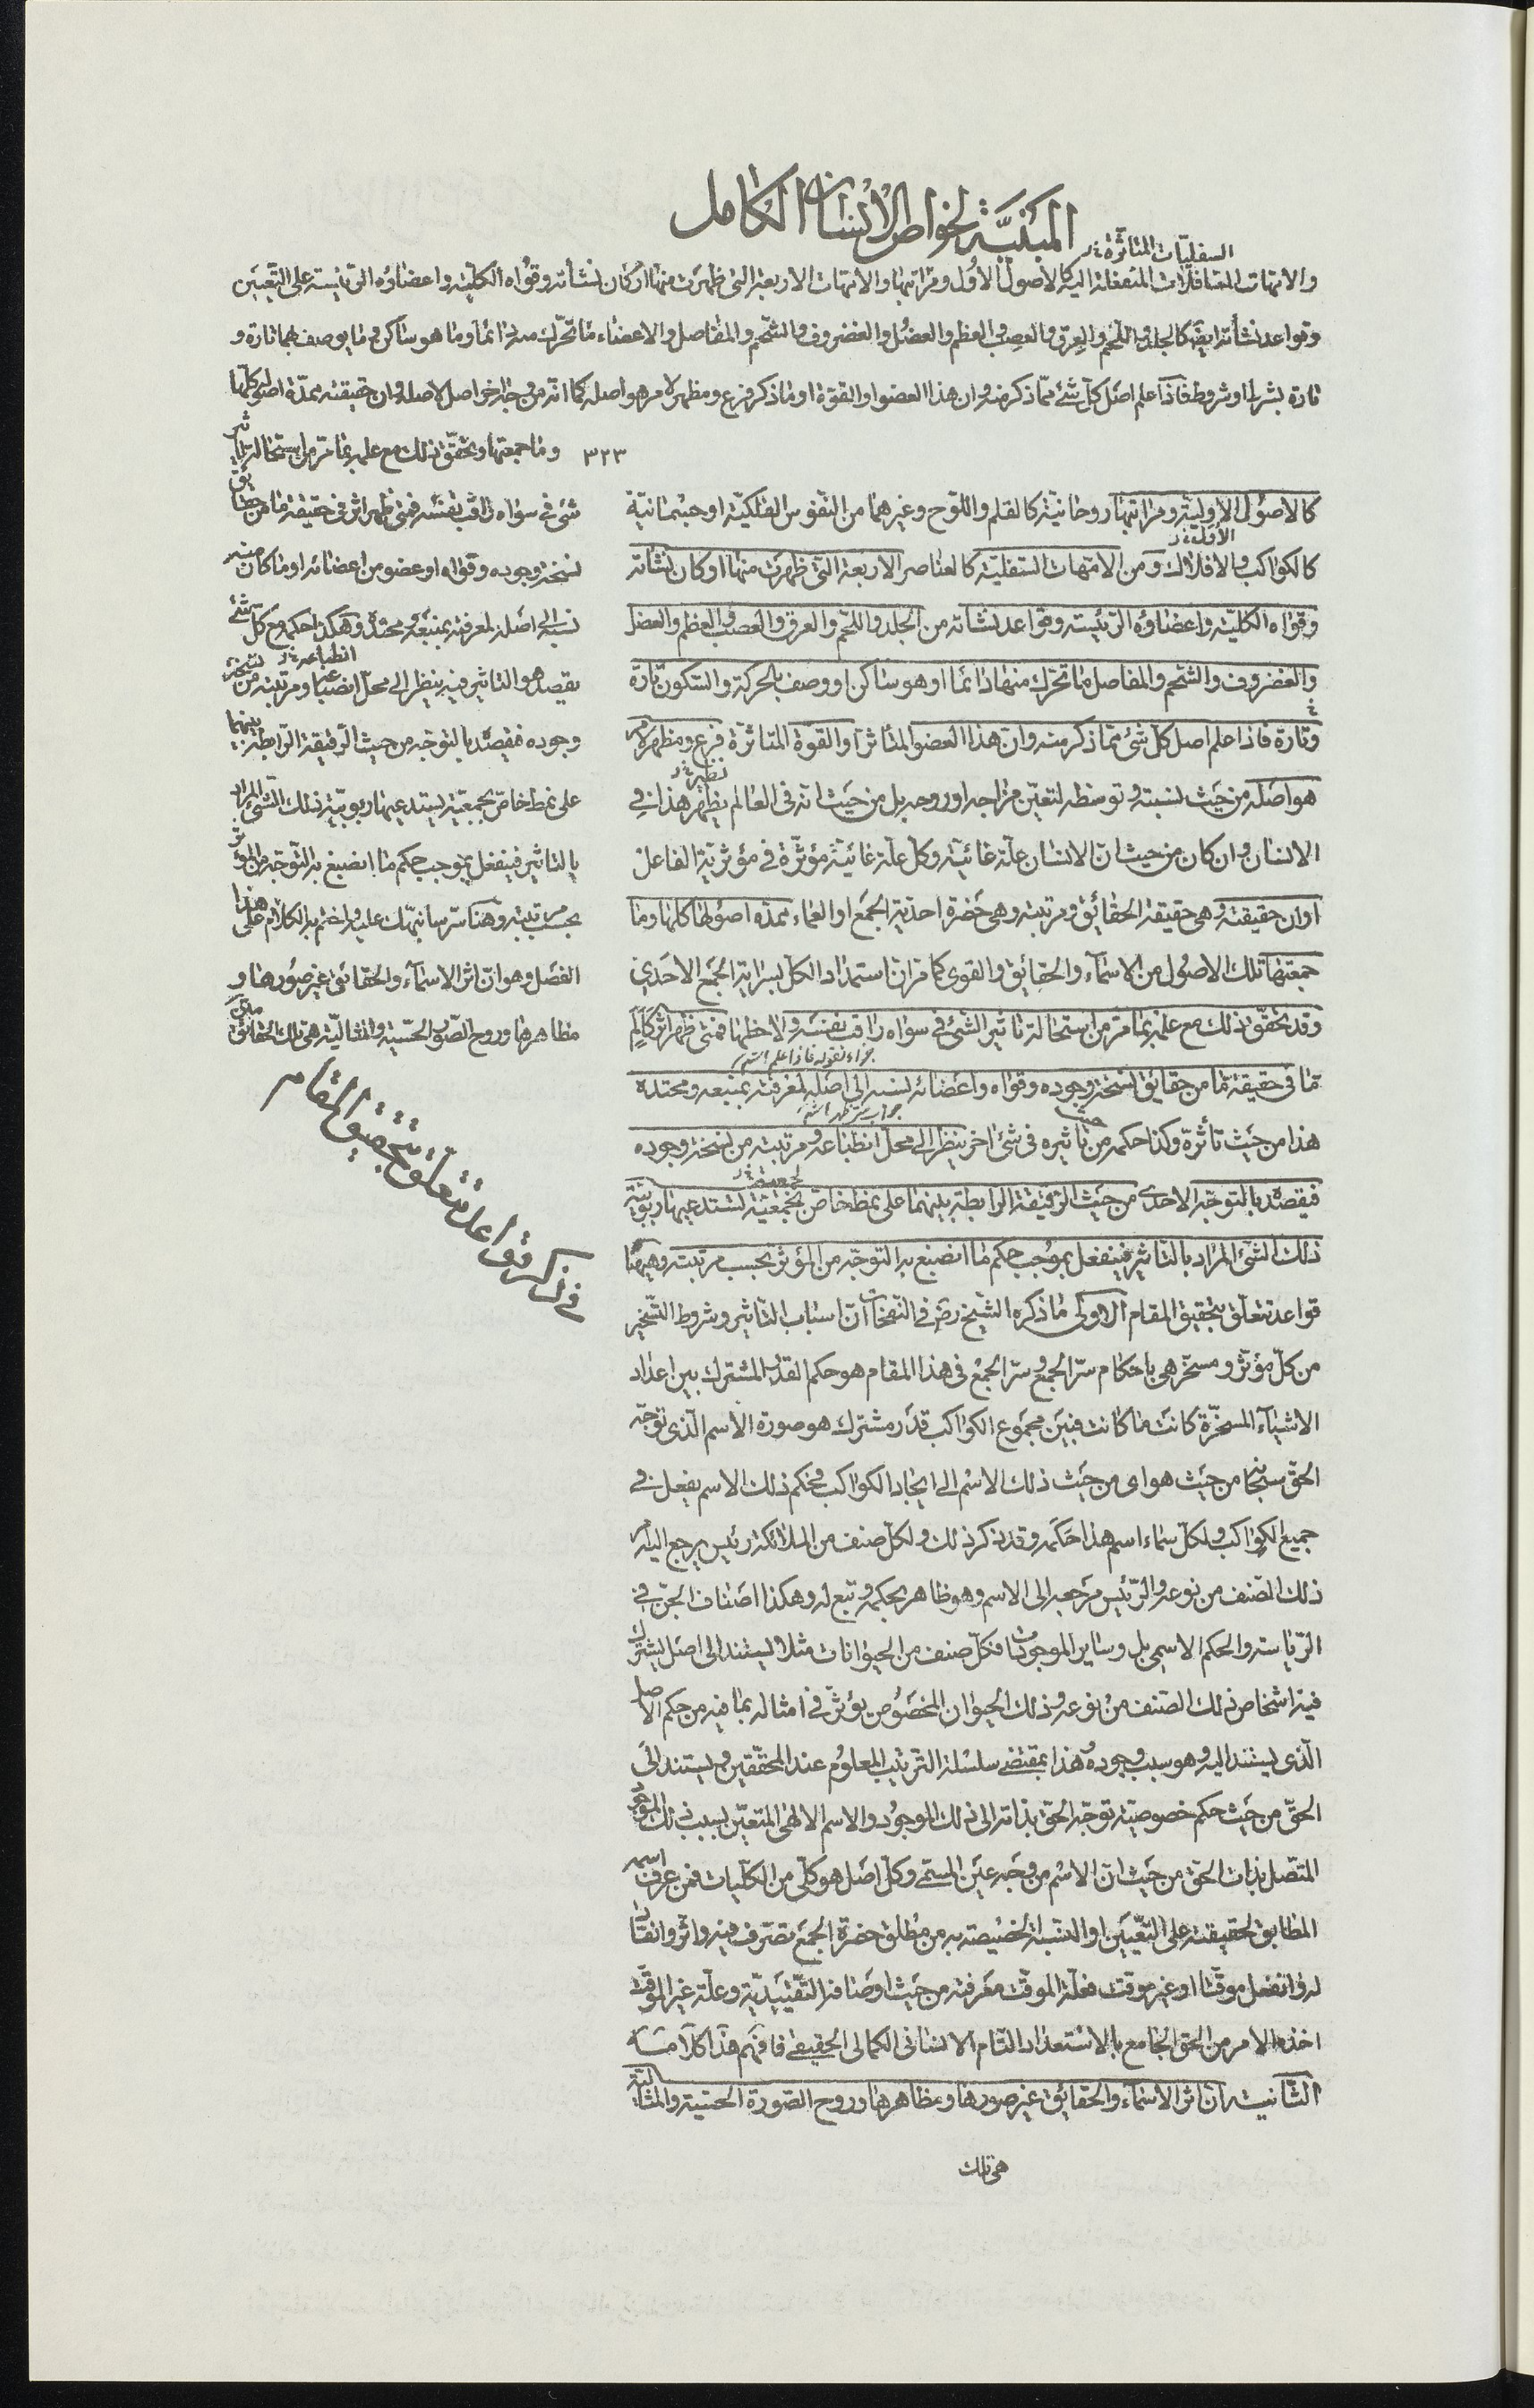 المبنیّة لخواص الانسان الکامل
السفلیّات المتاثرة
والامهات السافلات المنفعلة الیه کالاصول الاول ومراتبها والامهات الاربعة التی ظهرت منها ارکان نشأته وقواه الکلیّة واعضاؤه الرئیسة علی التعیین
وقواعد نشأته ایضا کالجلد واللحم والعرق والعصب والعظم والعضل والغضروف والشحم والمفاصل والاعضاء ما تحرّك منه دائما وما هو ساکن وما یوصف بهما تارة و
تارة بشرط او شروط فاذا علم اصل کل شئ ممّا ذکر منه وان هذا العضو او القوة او ما ذکر فرع ومظهر لامر هو اصله کما انه من وجه اخر اصل لاصله وان حقیقته ممدّة اصولها کلها
وما جمعتها وتحقّق ذلك مع علمه بما مرّ من استحالة تاثیر
٣٢٣
شئ فی سواه راقب نفسه فمتی ظهر اثر فی حقیقة ما من حقایق
نسخة وجوده وقواه او عضو من اعضائه او ما کان منه
نسبه الی اصله لمعرفته بمنبعه ومحتده وهکذا حکمه مع کل شئ
انطباعه
یقصد هو التاثیر فیه ینظر الی محل انصباعه ومرتبته من نسخة
وجوده فیقصده بالتوجّه من حیث الرقیقة الرابطة بینهما
علی نمط خاصّ بجمعیّة یستدعیها ربوبیّة ذلك الشئ المراد
بالتاثیر فینفعل بموجب حکم ما انصبغ به التوجّه من المؤثر
بحسب مرتبته وهنا سرّ سانبّهك علیه واختم به الکلام علی هذا
الفصل وهو انّ اثر الاسماء والحقائق غیر صورها و
مظاهرها وروح الصور الحسیة والمثالیّة هی تلك الحقائق
فی ذکر قواعد تتعلق بتحقیق المقام
کالاصول الاولیّة ومراتبها روحانیّة کالقلم واللّوح وغیرهما من النفوس الفلکیّة او جسمانیّة
الاولة
کالکواکب والافلاك ومن الامهات السفلیّة کالعناصر الاربعة التی ظهرت منها ارکان نشأته
وقواه الکلیّة واعضاؤه الرئیسة وقواعد نشأته من الجلد واللحم والعرق والعصب والعظم والعضل
والغضروف والشحم والمفاصل ما تحرّك منها دائما او هو ساکن او وصف بالحرکة والسکون تارة
وتارة فاذا علم اصل کل شئ ممّا ذکر منه وان هذا العضو المتاثر او القوة المتاثرة فرع ومظهر لامر
نظیره
هو اصله من حیث نسبته وتوسّطه لتعیّن مزاجه او روحه بل من حیث انه فی العالم یظهر هذا فی
الانسان وان کان من حیث انّ الانسان علّة غائیّة وکل علّة غائیّة مؤثّرة فی مؤثریّة الفاعل
او ان حقیقته وهی حقیقة الحقائق ومرتبته وهی حضرة احدیّة الجمع او العماء ممدّة اصولها کلها وما
جمعتها تلك الاصول من الاسماء والحقایق والقوی کما مرّ ان استمداد الکلّ بسرایة الجمع الاحدی
وقد تحقّق ذلك مع علمه بما مرّ من استحالة تاثیر الشئ فی سواه راقب نفسه ولاحظها فمتی ظهر اثر
جزاء لقوله فاذا علم
ما فی حقیقة ما من حقایق نسخة وجوده وقواه واعضائه نسبه الی اصله لمعرفته بمنبعه ومحتده
هذا من حیث تأثره وکذا حکمه من حیث تاثیره فی شئ اخر ینظر الی محلّ انطباعه ومرتبته من نسخة وجوده
لجمعیة
فیقصده بالتوجّه الاحدی من حیث الرقیقة الرابطة بینهما علی نمط خاصّ بجمعیّة تستدعیها ربوبیّة
ذلك الشئ المراد بالتاثیر فینفعل بموجب حکم ما انصبغ به التوجّه من المؤثر بحسب مرتبته وهیهنا
قواعد تتعلّق بتحقیق المقام الاولی ما ذکره الشیخ رض فی النفحات انّ اسباب التاثیر وشروط التسخیر
من کلّ مؤثّر ومسخّر هی باحکام سرّ الجمع وسرّ الجمع فی هذا المقام هو حکم القدر المشترك بین اعداد
الاشیاء المسخّرة کانت ما کانت فبین مجموع الکواکب قدر مشترك هو صورة الاسم الذی توجّه
الحقّ سبحانه من حیث هو ای من حیث ذلك الاسم الی ایجاد الکواکب فحکم ذلك الاسم یفعل فی
جمیع الکواکب ولکل سماء اسم هذا حکمه وقد ذکر ذلك ولکلّ صنف من الملائکة رئیس یرجع الیه
ذلك الصنف من نوعه والرئیس مرجعه الی الاسم وهو ظاهر بحکمه وتبع له وهکذا اصناف الجنّ فی
الریاسة والحکم الاسمی بل وسایر الموجودات فکل صنف من الحیوانات مثلا یستند الی اصل یشترك
فیه اشخاص ذلك الصنف من نوعه وذلك الحیوان المخصوص یؤثّر فی امثاله بما فیه من حکم الاصل
الذی یستند الیه وهو سبب وجوده هذا بمقتضی سلسلة الترتیب المعلوم عند المحقّقین ویستند الی
الحقّ من حیث حکم خصوصیّة توجّه الحق بذاته الی ذلك الموجود والاسم الالهی المتعیّن بسبب ذلك الموجود
المتّصل بذات الحق من حیث انّ الاسم من وجه عین المسمّی وکلّ اصل هو کلّی من الکلّیات فمن عرف اسمه
المطابق لحقیقته علی التعیین او النسبة المخصّصة به من مطلق حضرة الجمع تصرّف فیه واثّر وانقاد
له وانفعل موقتا او غیر موقت فعلّة الموقت معرفته من حیث اوصافه التقییدیّة وعلّة غیر الموقت
اخذه الامر من الحق الجامع بالاستعداد التام الانسانی الکمالی الحقیقی فافهم هذا کلامه
الثانیة ان اثر الاسماء والحقائق غیر صورها ومظاهرها وروح الصورة الحسیة والمثالیّة
هی تلك